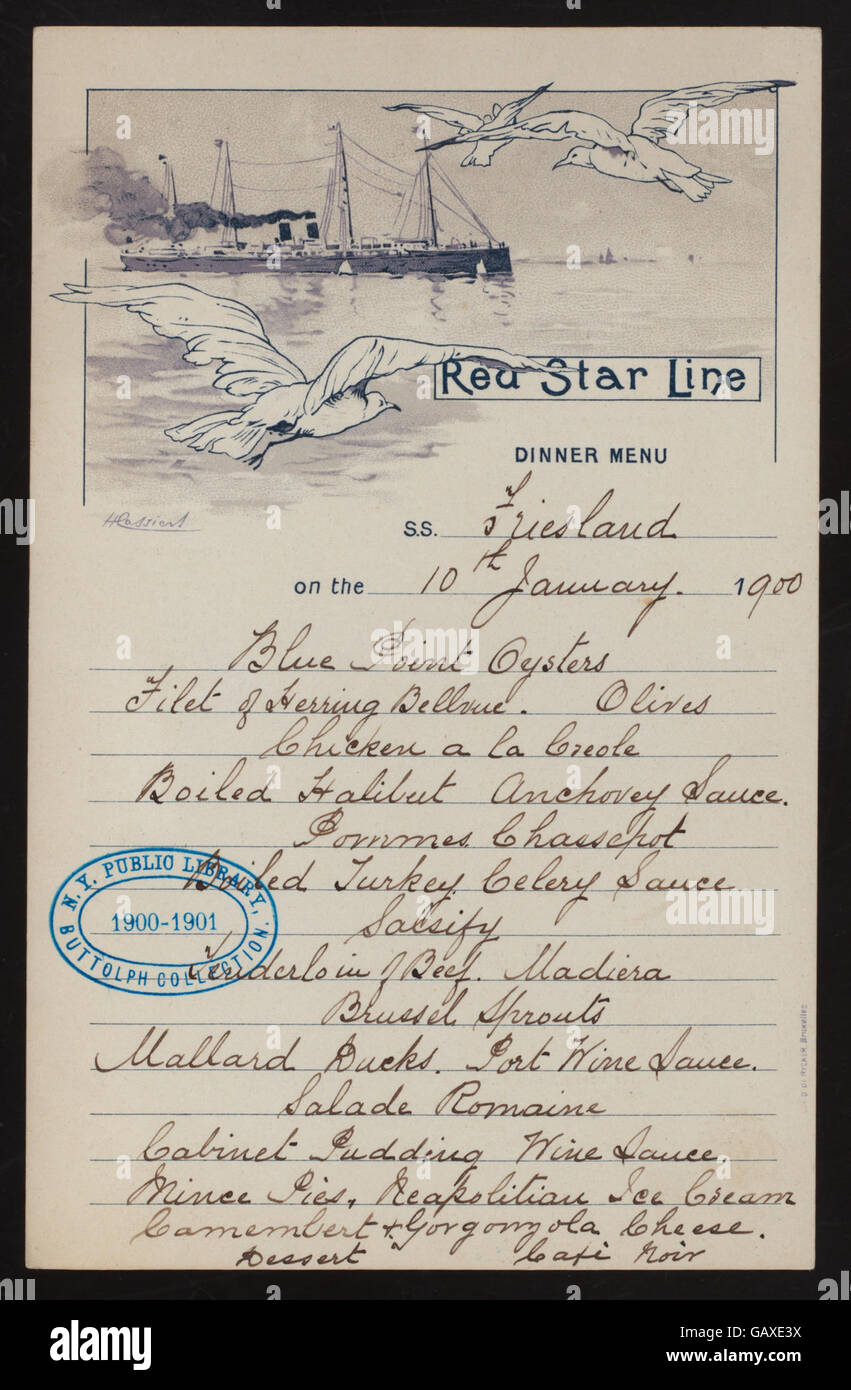 Red Star Line
DINNER MENU
H Cassiers
S.S. Friesland
on the 10th January. 1900
Blue Point Oysters
Filet of Herring Bellvue. Olives
Chicken a la Creole
Boiled Halibut Anchovey Sauce.
Pommes Chassepot
Boiled Turkey Celery Sauce
Salsify
Tenderloin of Beef. Madiera
Brussel Sprouts
Mallard Ducks. Port Wine Sauce.
Salade Romaine
Cabinet Pudding Wine Sauce.
Mince Pies, Neapolitian Ice Cream
Camembert & Gorgonzola Cheese.
Dessert Café Noir
N.Y. PUBLIC LIBRARY,
1900-1901
BUTTOLPH COLLECTION
alamy
Image ID: GAXE3X
www.alamy.com